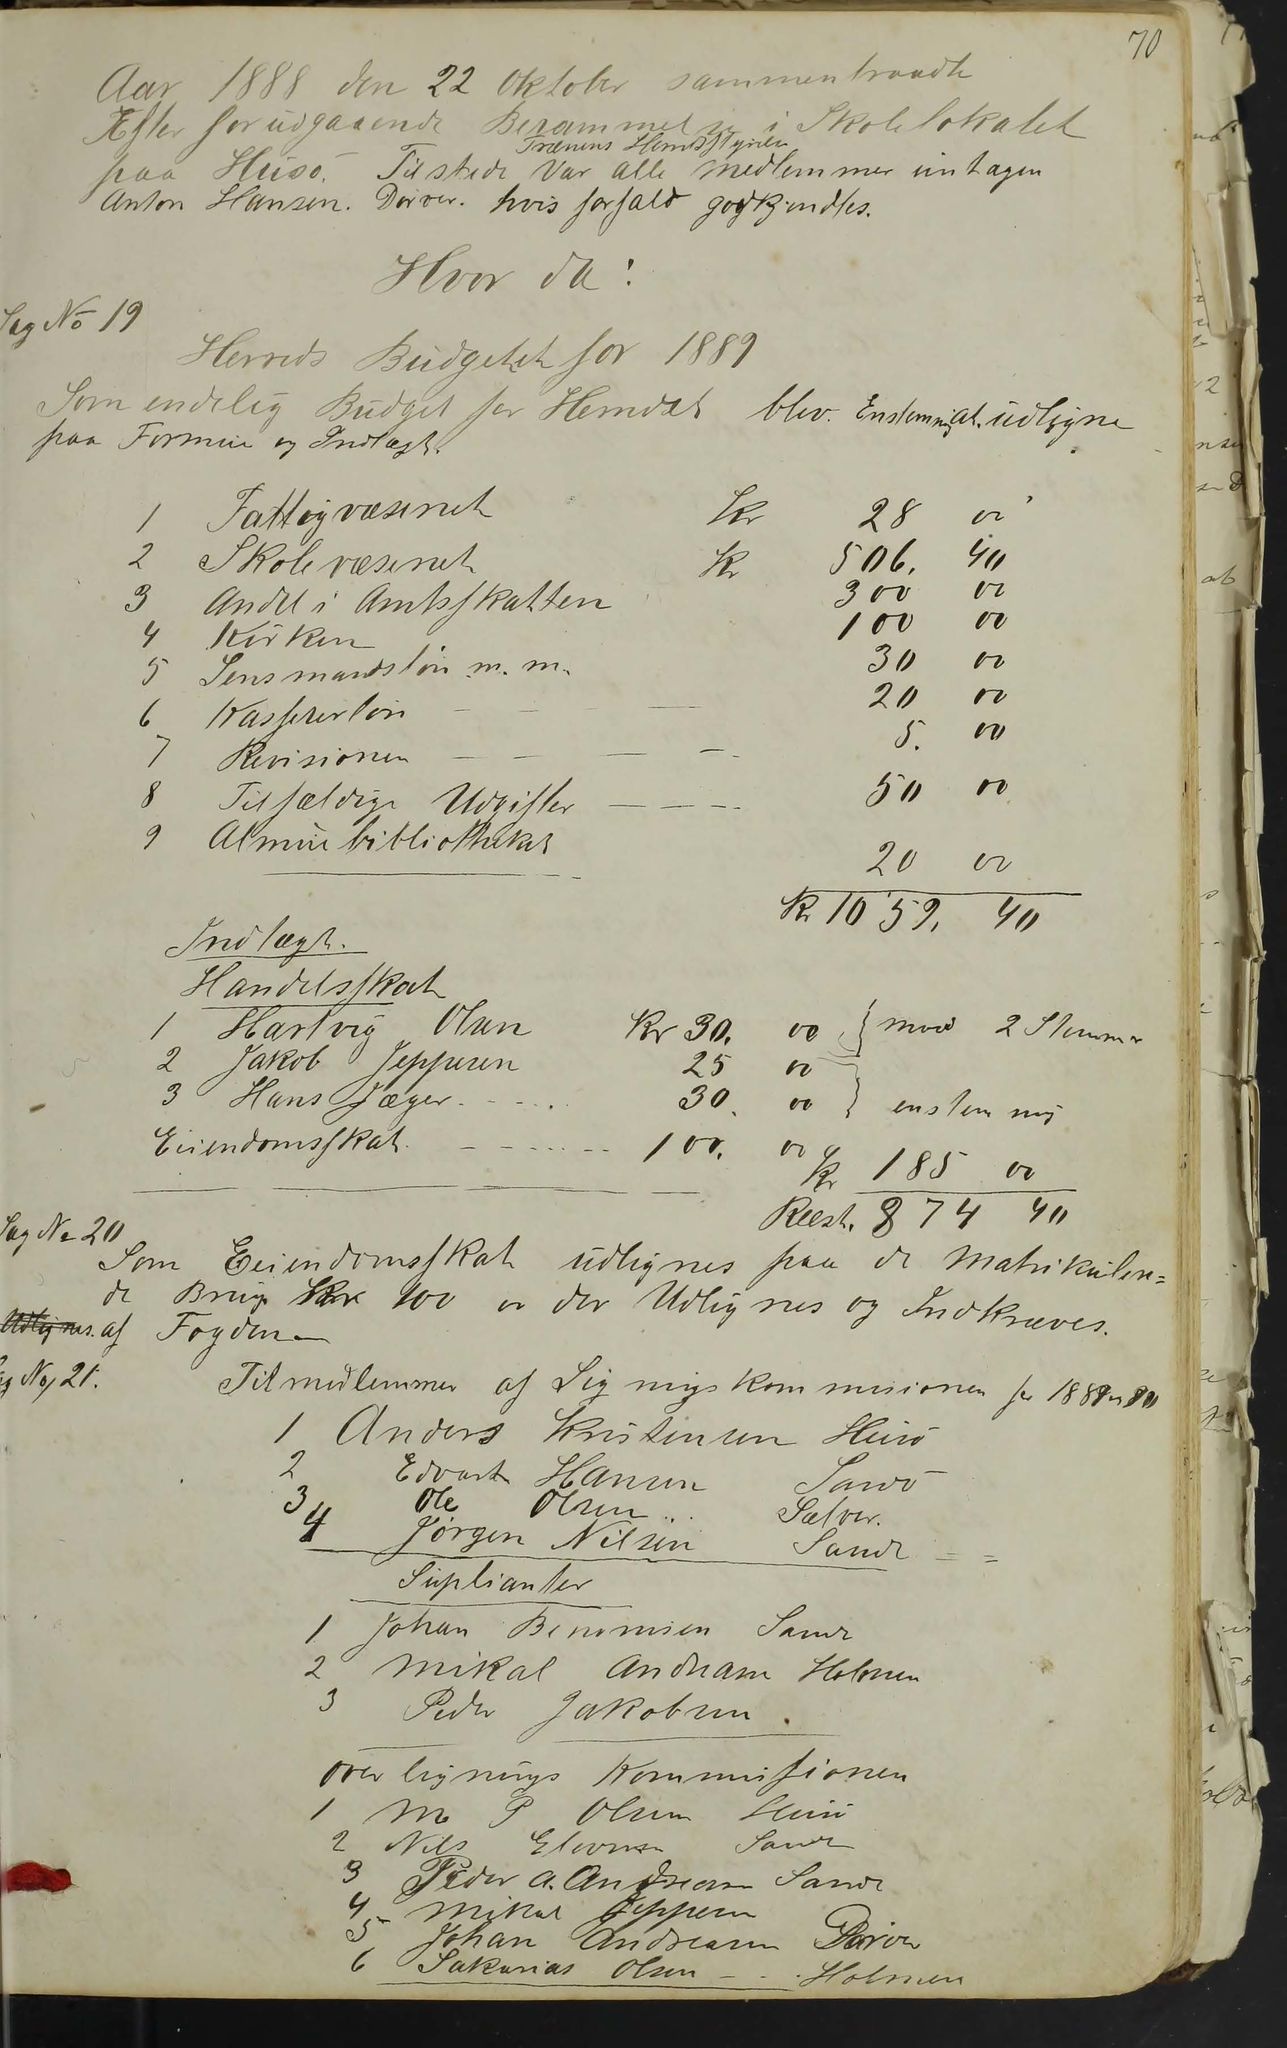 70
Aar 1888 den 22 Oktober sammentraadte
Efter forudgaaende Berammelse i Skolelokalet
Trænens Herredsstyrelse
paa Husø. Tilstede var alle medlemmer untagen
Anton Hansen. Dørver. hvis forfald godkjendtes.
Hvor da:
Sag No 19
Herreds Budgetet for 1889
Som endelig Budget for Herredet blev. Enstemig at. udligne
paa Formue og Indtægt.
1 Fattigvæsenet Kr 28 00
2 Skolevæsenet Kr 506. 40
3 Andel i Amtsskatten 300 00
4 Kirken 100 00
5 Lensmandsløn m. m. 30 00
6 Kassererløn 20 00
7 Revisionen 5. 00
8 Tilfældige Udgifter 50 00
9 Almuebibliotheket 20 00
Kr 1059. 40
Indtægt.
Handelsskat
1 Hartvig Olsen Kr 30. 00 } mod 2 Stemmer
2 Jakob Jeppesen 25 00
3 Hans Jæger 30. 00 } enstemmig
Eiendomsskat 100. 00
Kr 185 00
Reest. 874 40
Sag No 20
Som Eiendomsskat udlignes paa de Matrikulere=
de Brug Kr 100 der Udlignes og Indkræves.
Udlignes. af Fogden
Sag No, 21.
Til medlemmer af Ligningskommisionen for 1889
1 Anders Kristensen Husø
2 Edvart Hansen Sandø
3 Ole Olsen Selvær.
4 Jørgen Nilsen Sande
Suplianter
1 Johan Sande
2 Mikal Andreasen Holmen
3 Peder Jakobsen.
Overlignings Kommissionen
1 M P Olsen Husø
2 Nils Sande
3 Peder A. Andreasen Sande
4 Mikal Jeppesen
5 Johan Andreasen Dørvær
6 Sakarias Olsen Holmen